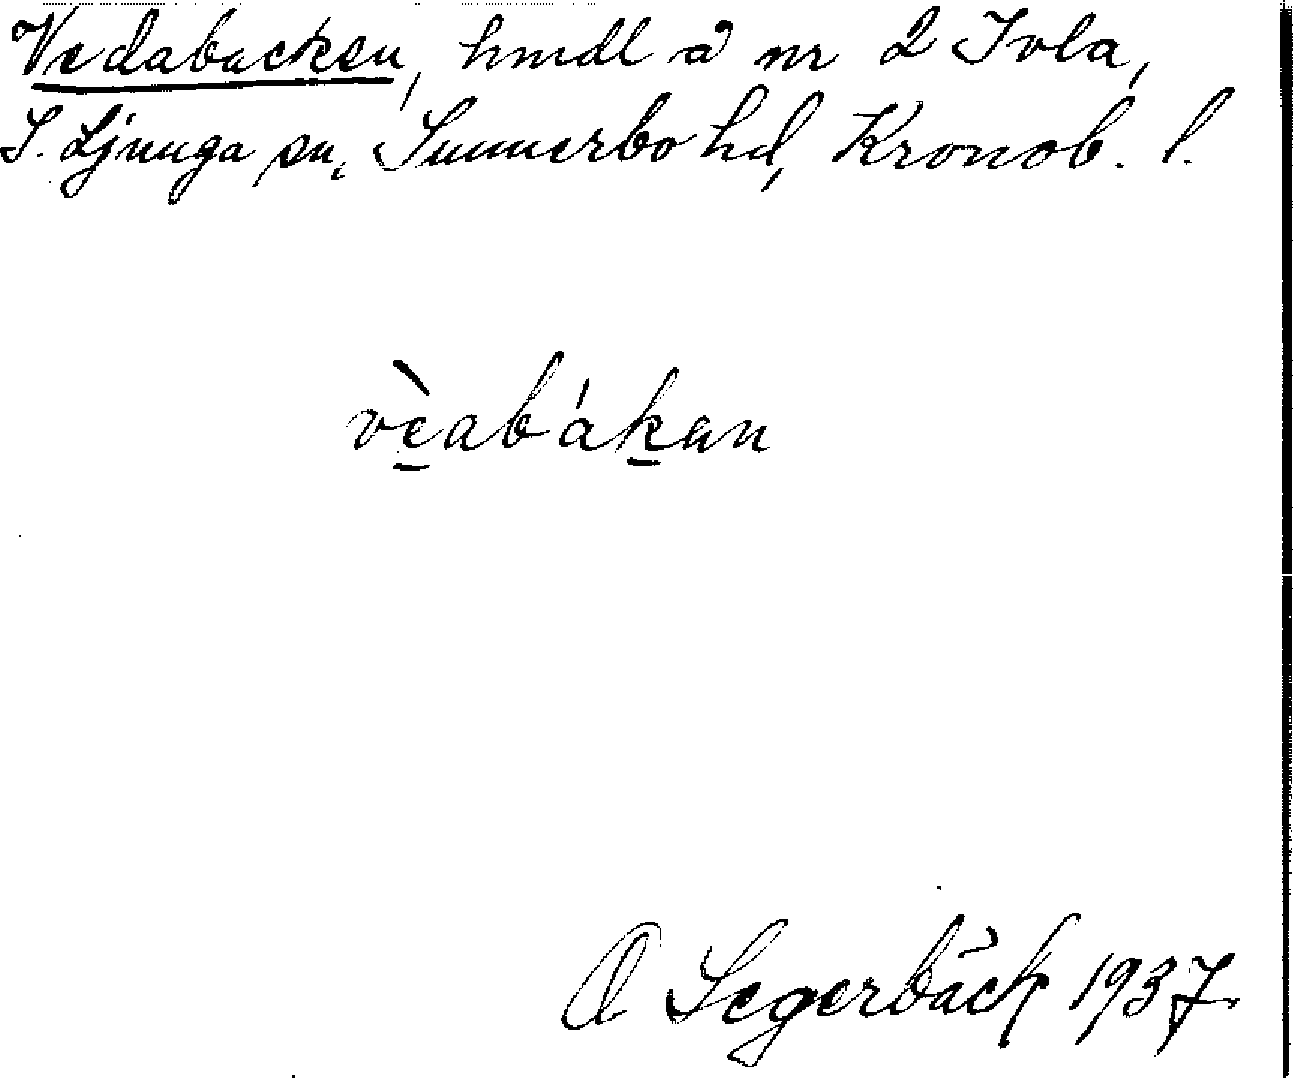 Vedabacken, hmdl å nr 2 Ivla,
S. Ljunga sn, Sunnerbo hd, Kronob. l.
vèabákan
A Segerbäck 1937